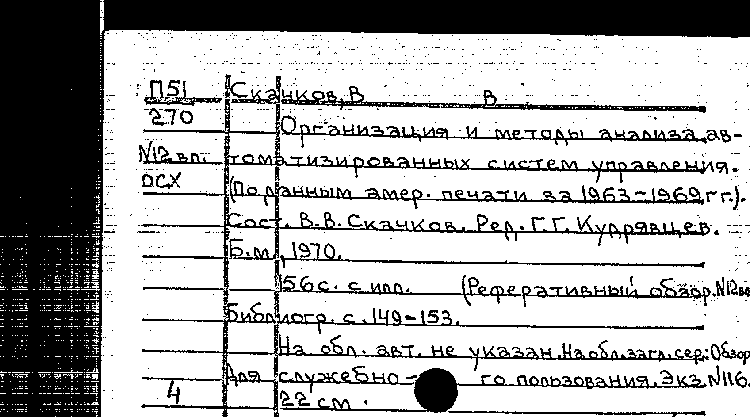 П51 Скачков, В В
270 Организация и методы анализа ав-
N12 вп. томатизированных систем управления.
ОСХ (По данным амер. печати за 1963-1969 гг.).
Сост. В.В. Скачков. Ред. Г.Г. Кудрявцев.
Б.м., 1970.
156 с. с илл. (Реферативный обзор. N12 вп
Библиогр. с. 149-153.
На обл. авт. не указан. На обл. загл. сер.: Обзор
Для служебно- го пользования. Экз. N116.
4 22 см.